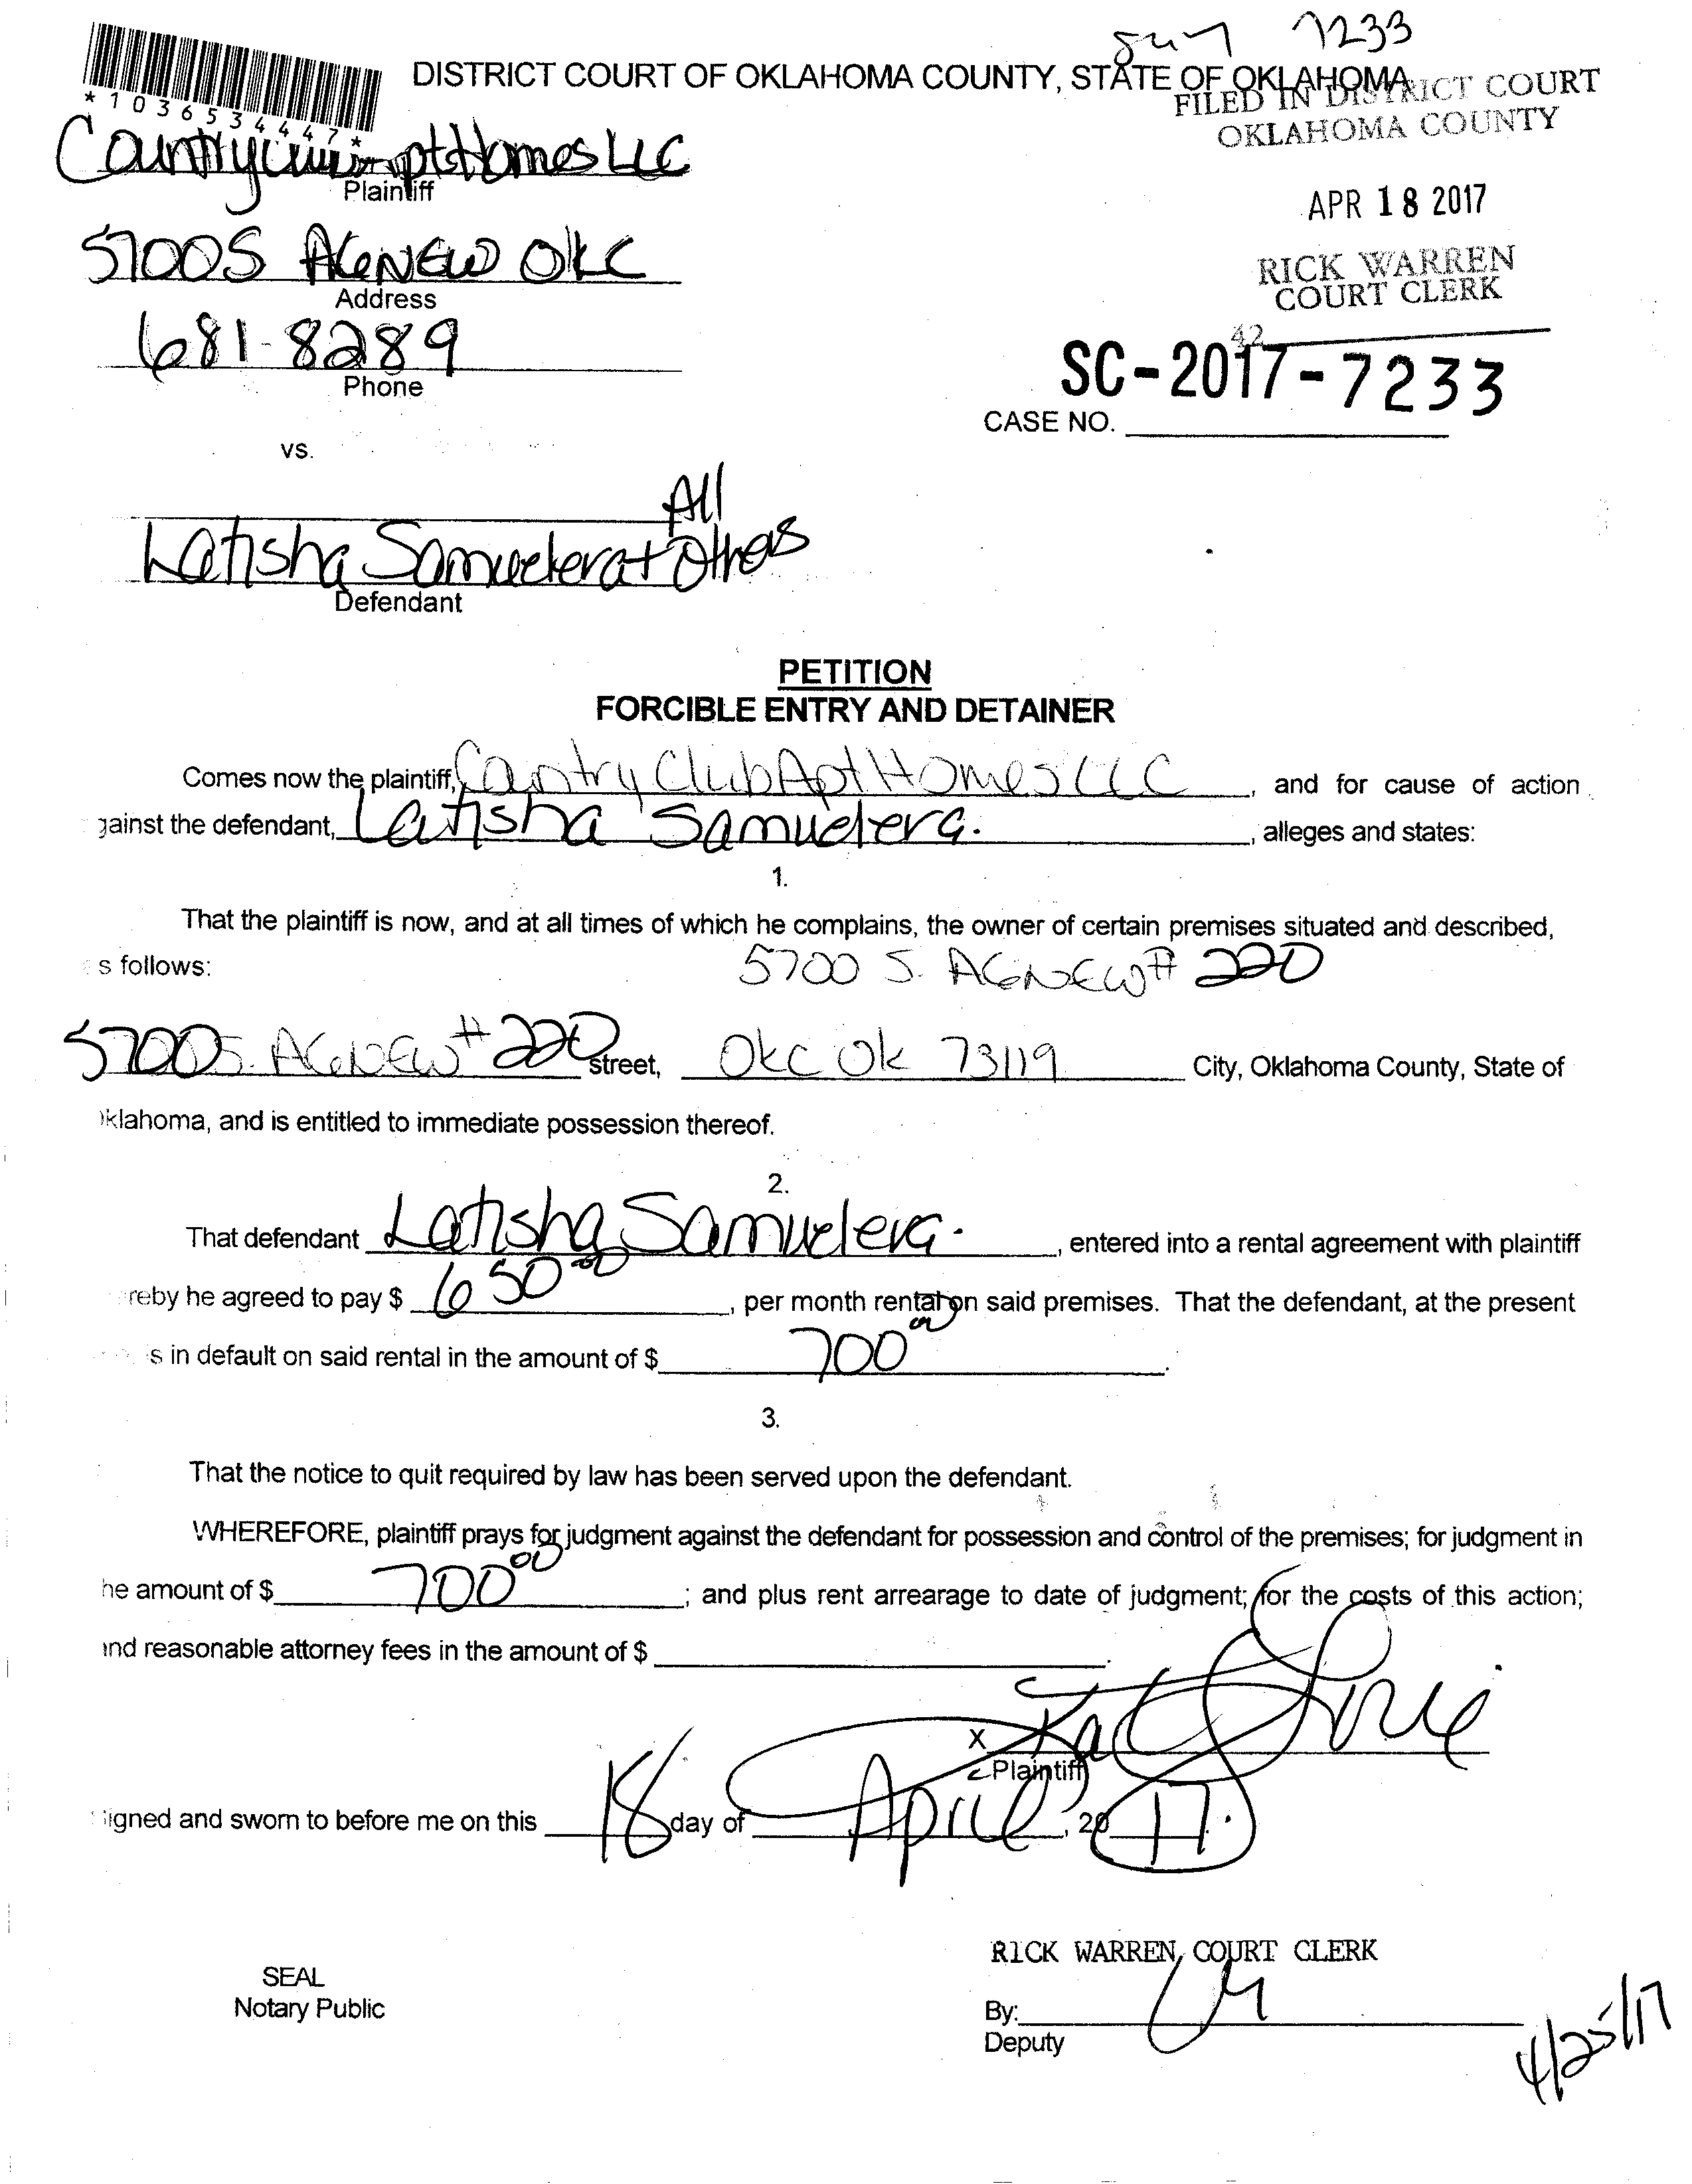 7233
DISTRICT COURT OF OKLAHOMA COUNTY, STATE OF OKLAHOMA
FILED IN DISTRICT COURT
OKLAHOMA COUNTY
*1036534447*
Country Apt Homes LLC
Plaintiff
APR 18 2017
5700 S AGNEW OKC
Address
RICK WARREN
COURT CLERK
681-8289
Phone
42
SC-2017-7233
CASE NO.
vs.
All
Latisha Samuelera + Others
Defendant
PETITION
FORCIBLE ENTRY AND DETAINER
Comes now the plaintiff, Country Club Apt Homes LLC, and for cause of action
gainst the defendant, Latisha Samuelera., alleges and states:
1.
That the plaintiff is now, and at all times of which he complains, the owner of certain premises situated and described,
s follows: 5700 S. AGNEW # 220
5700 S. AGNEW # 220 street, OKC OK 73119 City, Oklahoma County, State of
klahoma, and is entitled to immediate possession thereof.
2.
That defendant Latisha Samuelera., entered into a rental agreement with plaintiff
reby he agreed to pay $ 650 00, per month rental on said premises. That the defendant, at the present
is in default on said rental in the amount of $ 700 00.
3.
That the notice to quit required by law has been served upon the defendant.
WHEREFORE, plaintiff prays for judgment against the defendant for possession and control of the premises; for judgment in
he amount of $ 700 00; and plus rent arrearage to date of judgment; for the costs of this action;
and reasonable attorney fees in the amount of $
X
Plaintiff
igned and sworn to before me on this 18 day of April, 20 17.
RICK WARREN, COURT CLERK
SEAL
Notary Public
By:
Deputy
4/25/17